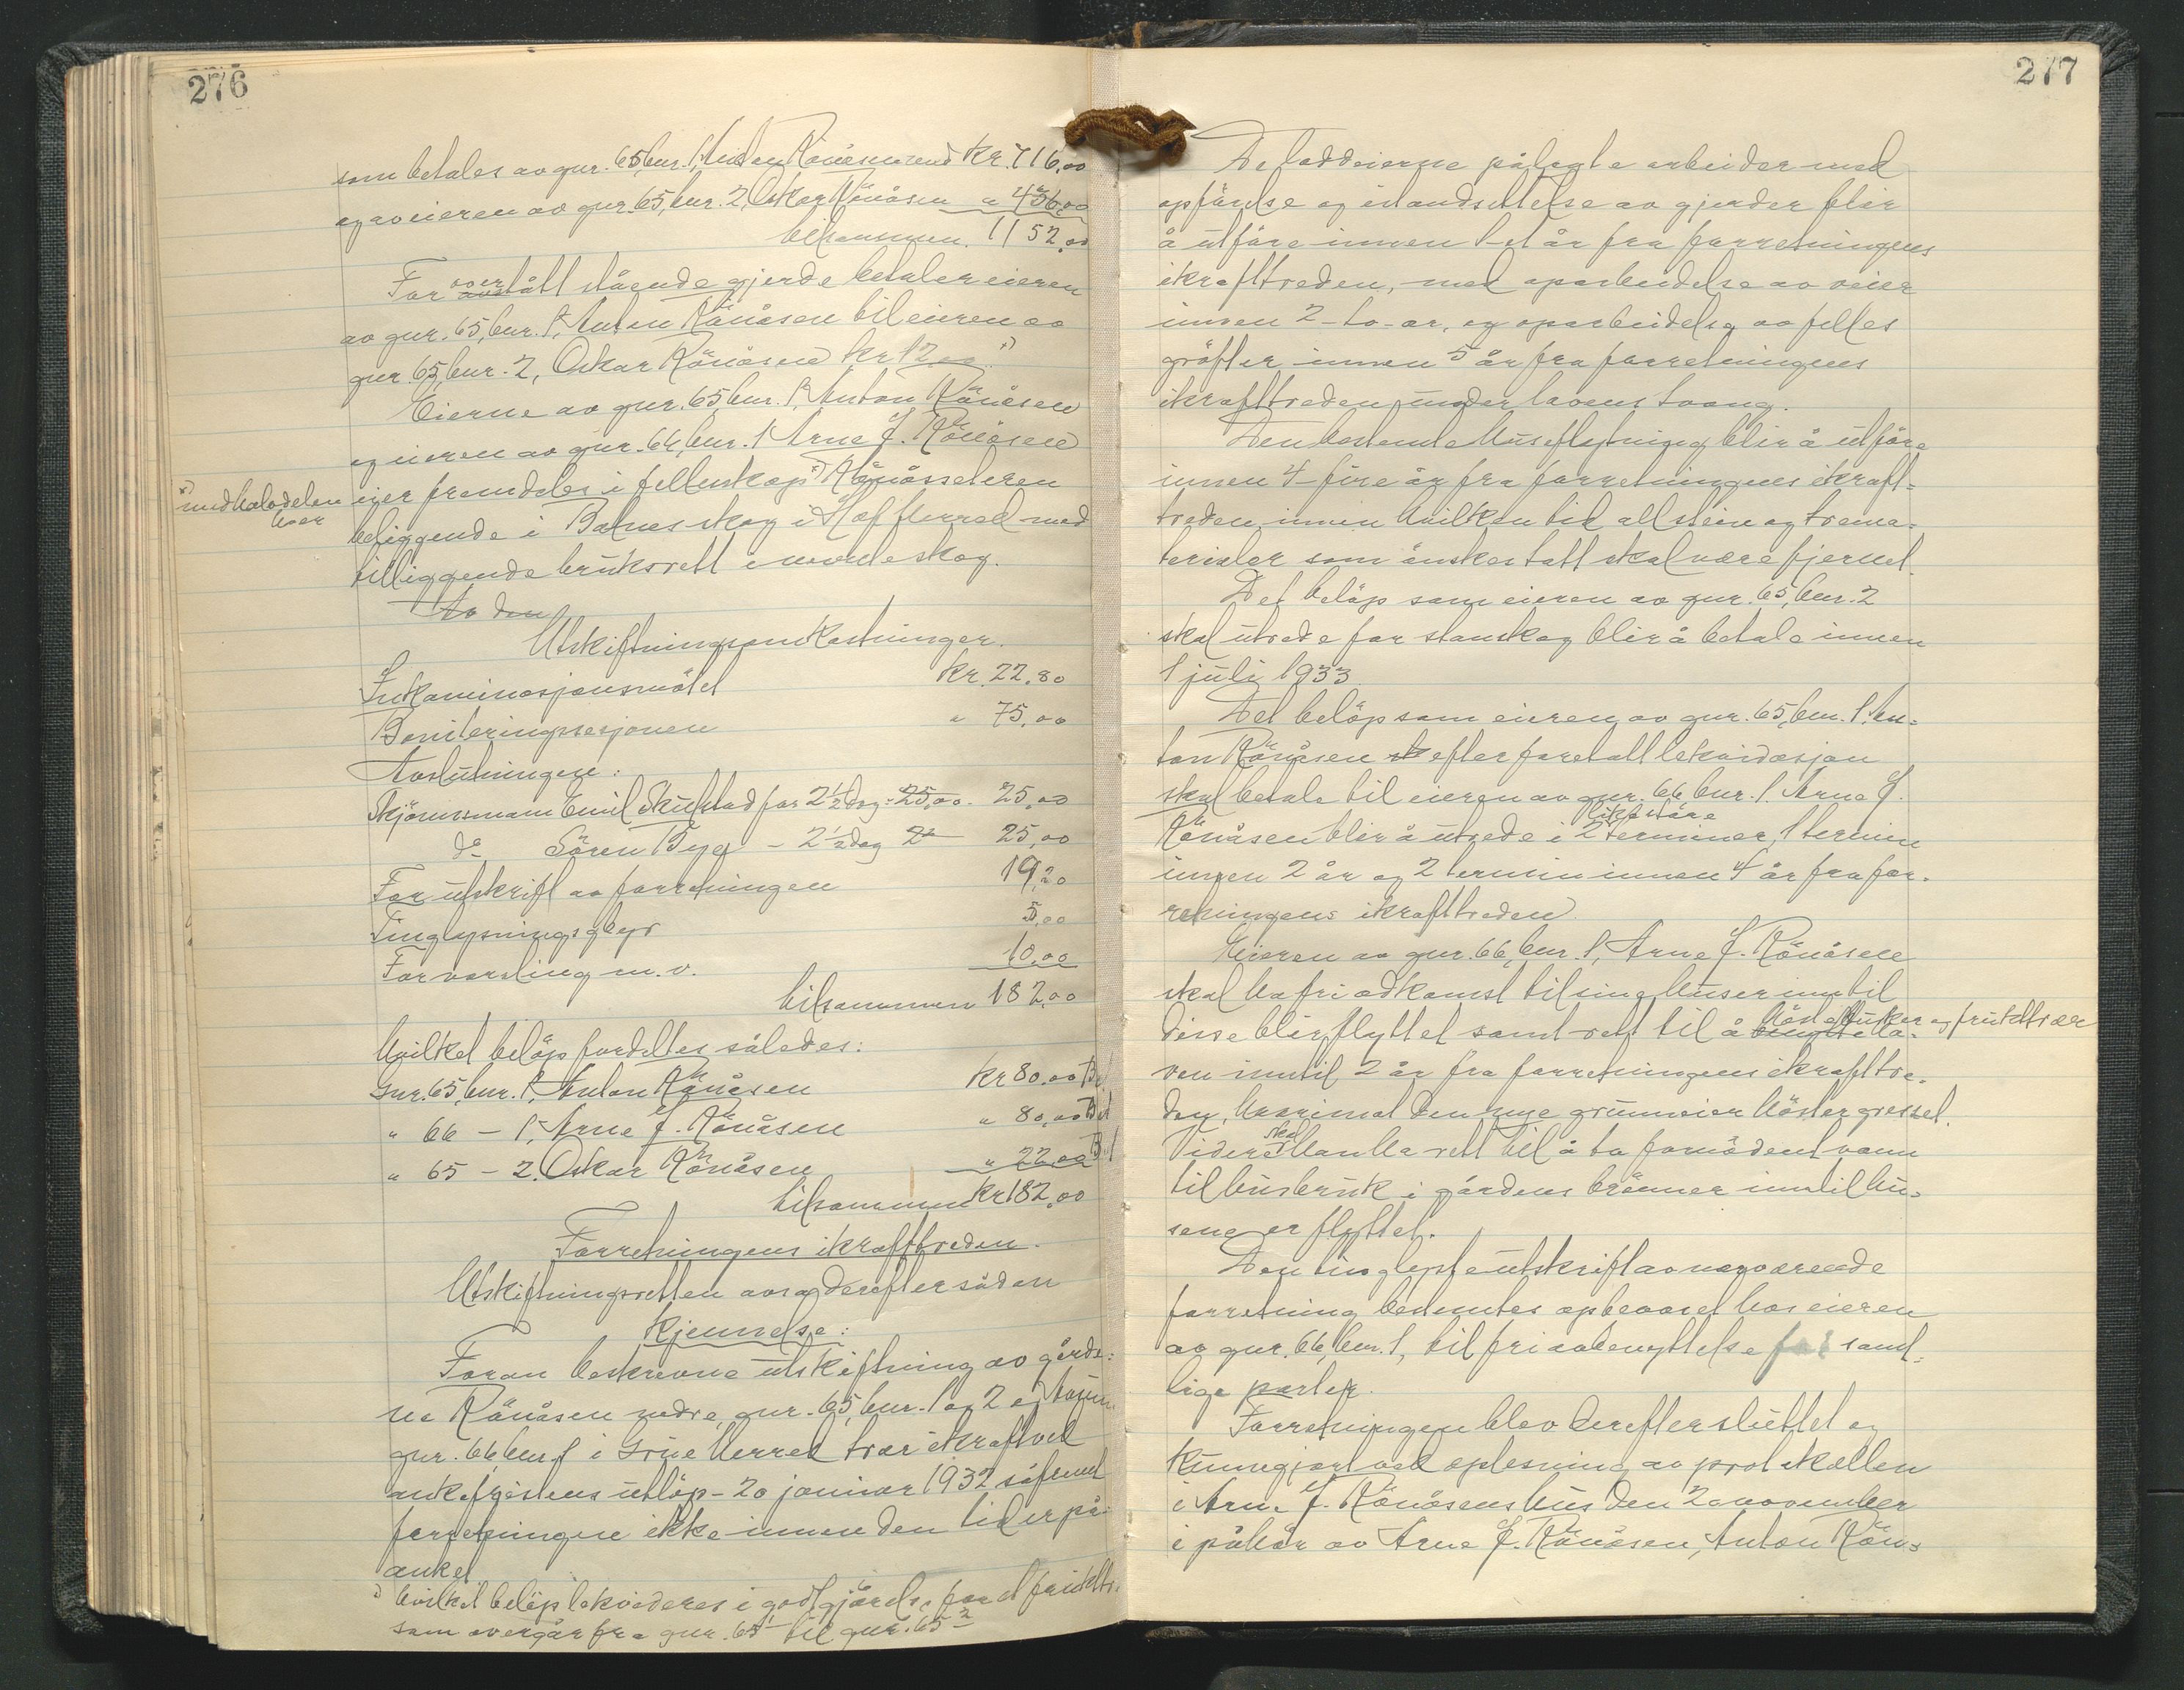 276
som betales av gnr. 65, bnr. 1, Anton Rönåsen med kr. 716,00
og av eieren av gnr. 65, bnr. 2, Oskar Rönåsen " 436,00
tilsammen. 1152,00
For overtatt stående gjerde betaler eieren
av gnr. 65, bnr. 1, Anton Rönåsen til eieren av
gnr. 65, bnr. 2, Oskar Rönåsen kr 12,00 x)
Eierne av gnr. 65, bnr. 1, Anton Rönåsen
og eieren av gnr. 66, bnr. 1 Arne J. Rönåsen
x) med halvdelen hver
eier fremdeles i fellesskap x) Rönåsseteren
beliggende i Balnesskog i Hof herred med
tilliggende bruksrett i nevnte skog.
Av den
Utskiftningsomkostninger.
Inkaminasjonsmötet kr. 22,80
Boniteringssesjonen " 75,00
Avslutningen:
Skjönnsmann Emil Skulstad for 2½ dag - 25,00. 25,00
do Sören Byg - 2½ dag 2 25,00
For utskrift av forretningen 19,20
Tinglysningsgebyr 5,00
Forvarsling m.v. 10,00
tilsammen 182,00
Hvilket belöp fordeltes således:
gnr. 65, bnr. 1, Anton Rönåsen kr 80,00 Bet
" 66 - 1, Arne J. Rönåsen " 80,00 Bet
" 65 - 2, Oskar Rönåsen " 22,00 Bet
tilsammen kr 182,00
Forretningens ikrafttreden.
Utskiftningsretten avsa derefter sådan
Kjennelse:
Foran beskrevne utskiftning av gårde-
ne Rönåsen nedre, gnr. 65, bnr. 1 og 2 og
gnr. 66 bnr 1 i Grue herred trær ikraft ved
ankefristens utlöp - 20 januar 1932 såfremt
forretningen ikke innen den tid er på-
anket.
x) hvilket belöp lekvideres i godtgjörelse for et frukttr.
som overgår fra gnr. 65 1 til gnr. 65 2
277
De loddeierne pålagte arbeider med
opförelse og istandsettelse av gjerder blir
å utföre innen 1-et år fra forretningens
ikrafttreden, med oparbeidelse av veier
innen 2-to-år, og oparbeidelse av felles
gröfter innen 5 år fra forretningens
ikrafttreden under lovens tvang.
Den bestemte husflytning blir å utföre
innen 4-fire år fra forretningens ikraft-
treden, innen hvilken tid all stein og trema-
terialer som önskes tatt skal være fjernet.
Det belöp som eieren av gnr. 65, bnr. 2
skal utrede for stamskog blir å betale innen
1 juli 1933.
Det belöp som eieren av gnr. 65, bnr. 1, An-
ton Rönåsen sk efter foretatt lekvidasjon
skal betale til eieren av gnr. 66, bnr. 1. Arne J.
Rönåsen blir å utrede i 2 like store terminer, 1 termin
innen 2 år og 2 termin innen 4 år fra for-
retningens ikrafttreden.
Eieren av gnr. 66, bnr. 1, Arne J. Rönåsen
skal ha fri adkomst til sine huser inntil
disse blir flyttet samt rett til å höste busker og frukttrær
ven inntil 2 år fra forretningens ikrafttre-
den, hvorimot den nye grunneier höster gresset.
Videre skal han ha rett til å ta fornödent vann
til husbruk i gårdens brönner inntil hu-
sene er flyttet.
Den tinglyste utskrift av nærværende
forretning bestemtes opbevaret hos eieren
av gnr. 66, bnr. 1, til fri avbenyttelse for samt-
lige parter.
Forretningen blev derefter sluttet og
kunngjort ved oplesning av protokollen
i Arne J. Rönåsens hus den 20 november
i påhör av Arne J. Rönåsen, Anton Rön-